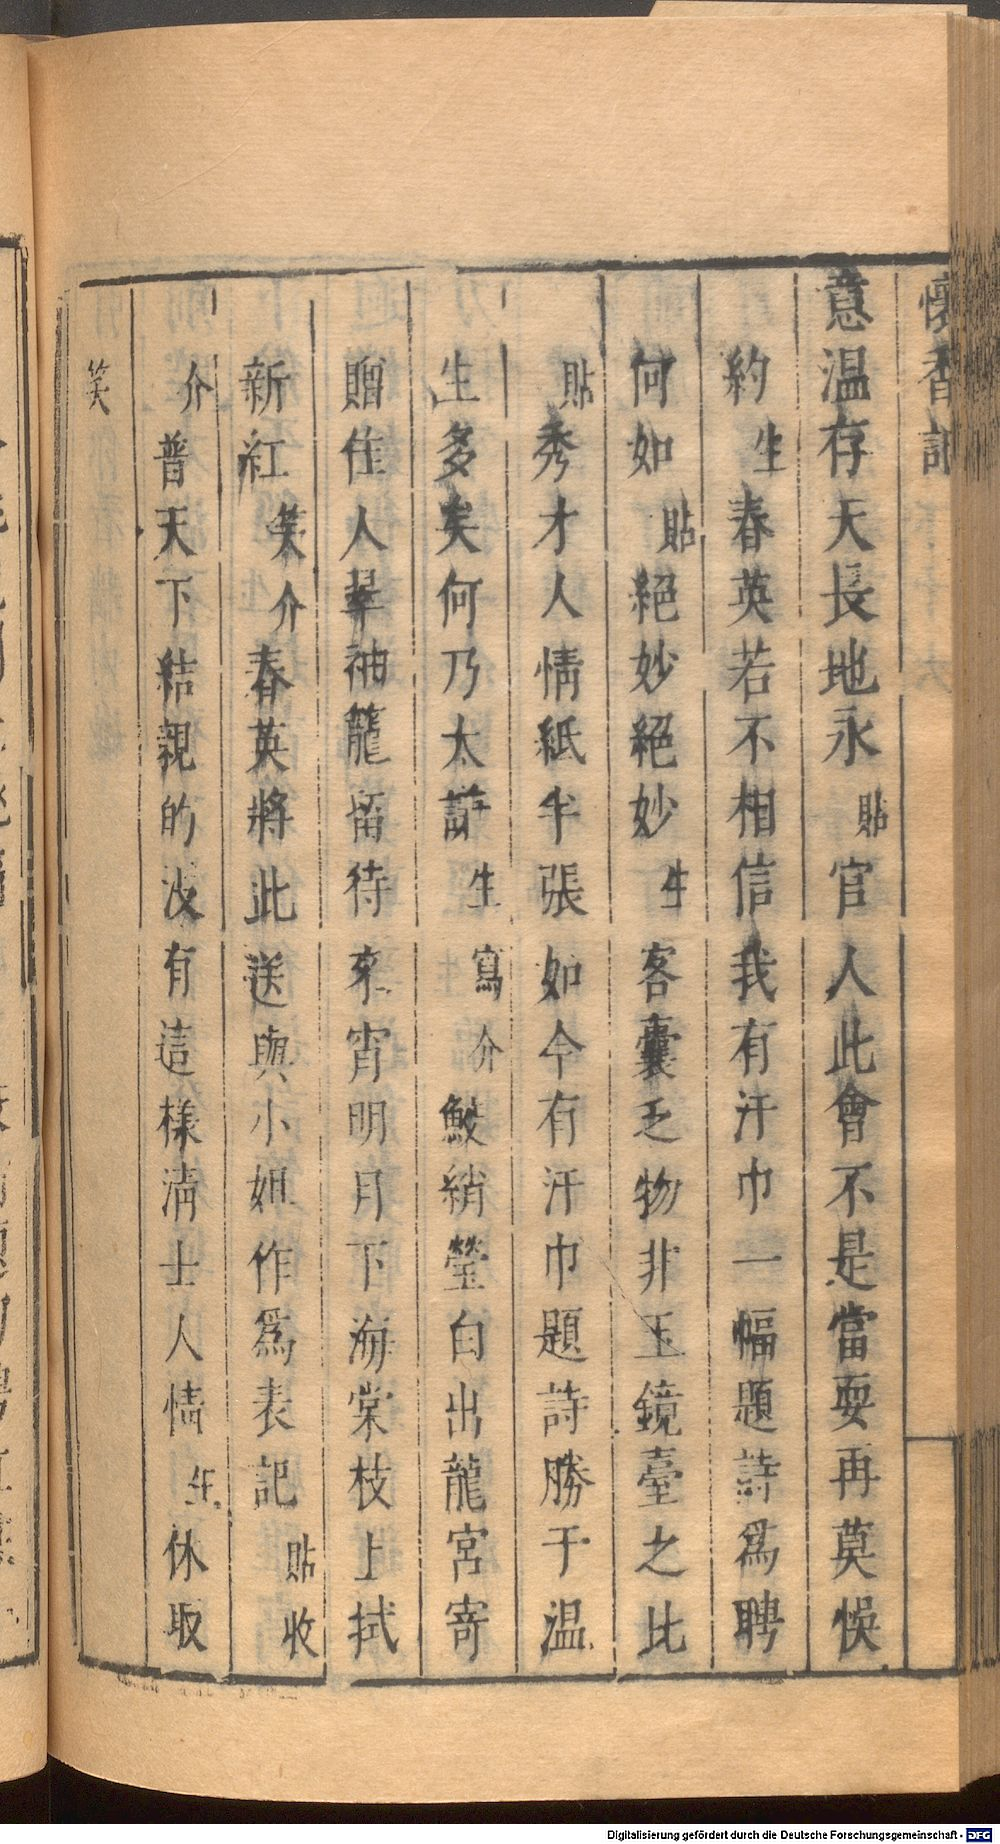 懷香記
意温存天長地永貼官人此會不是當耍再莫悞
約生春英若不相信我有汗巾一幅題詩爲聘
何如貼絕妙絕妙生客囊乏物非玉鏡臺之比
貼秀才人情紙半張如今有汗巾題詩勝于温
生多矣何乃太謙生寫介鮫綃瑩白出龍宮寄
贈佳人翠袖籠留待來宵明月下海棠枝上拭
新紅笑介春英將此送與小姐作爲表記貼收
介普天下結親的没有這樣清士人情生休取
笑
Digitalisierung gefördert durch die Deutsche Forschungsgemeinschaft - DFG